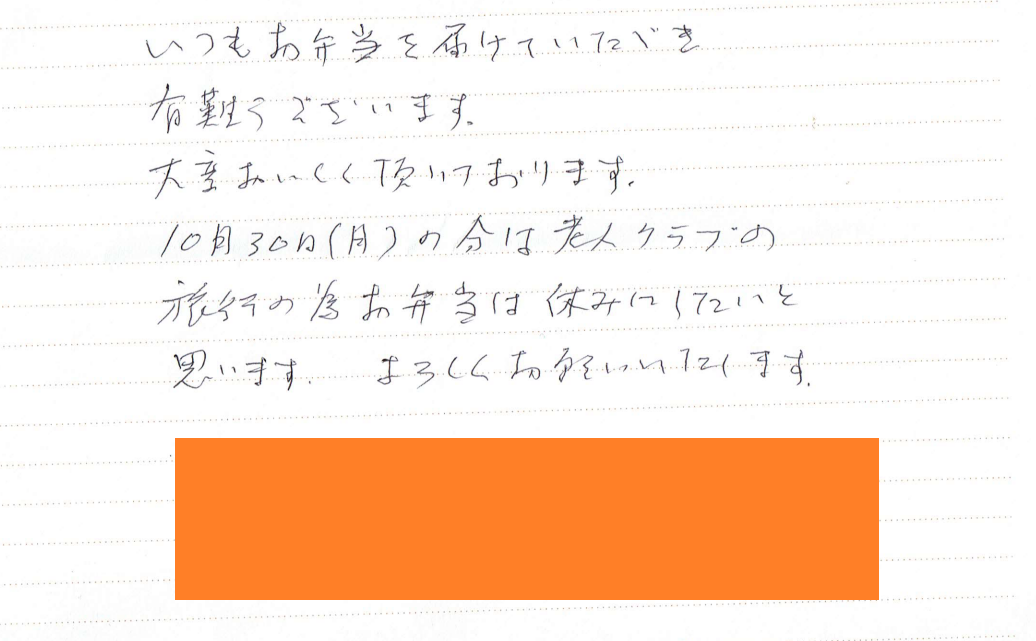 いつもお弁当を届けていただき
有難うございます。
大変おいしく頂いております。
10月30日(月)の分は老人クラブの
旅行の為お弁当は休みにしたいと
思います。 よろしくお願いいたします。